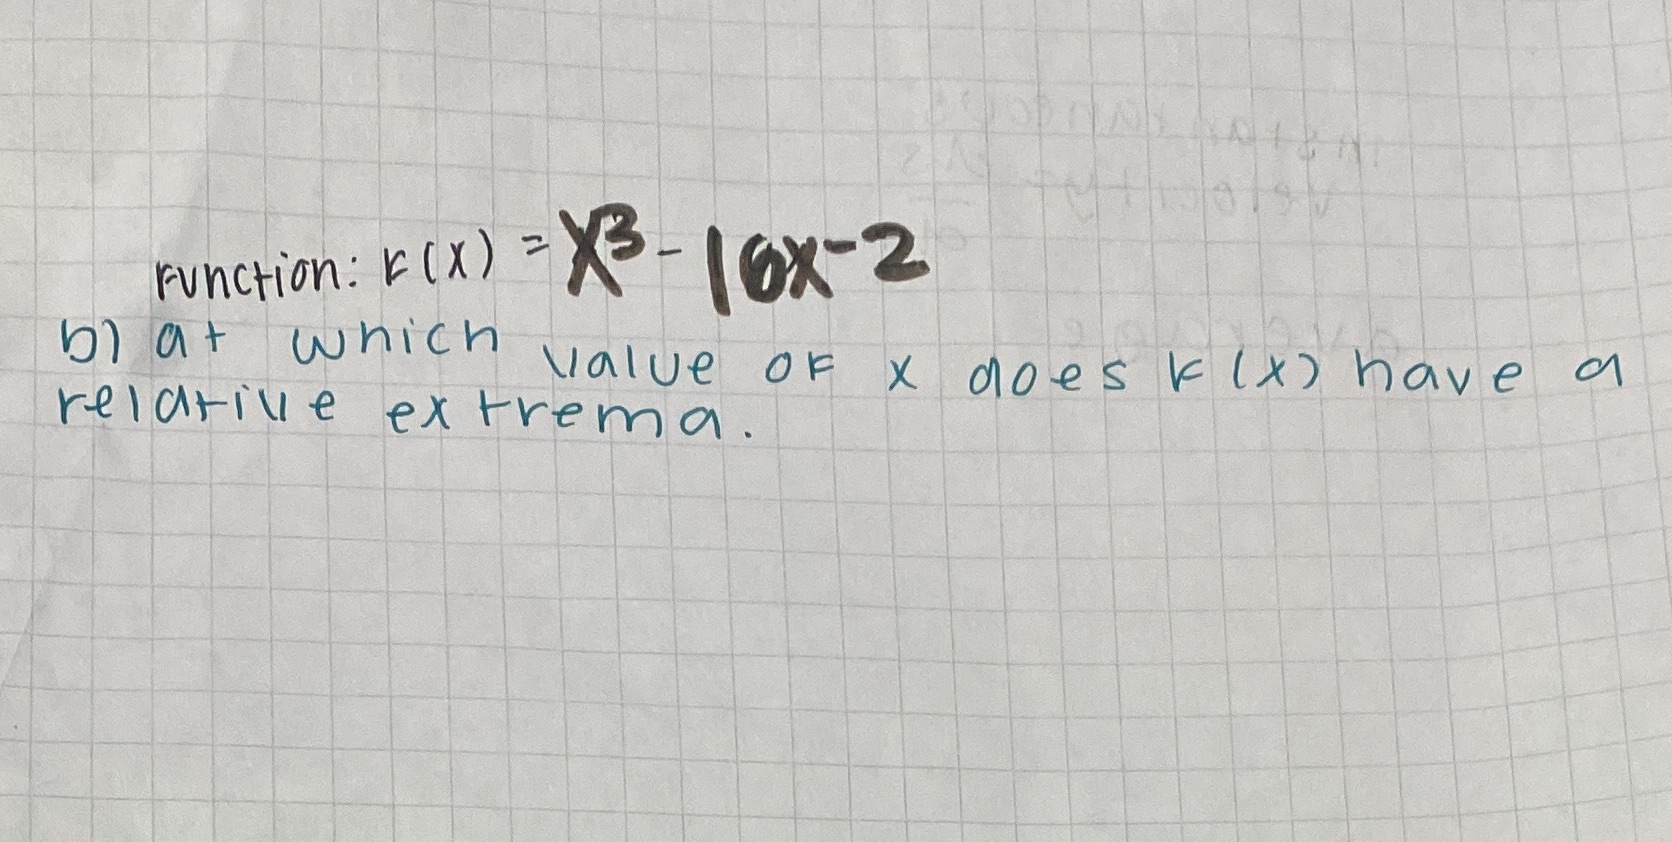 Function: F(x) = x³ - 10x - 2
b) at which value of x does F(x) have a
relative extrema.